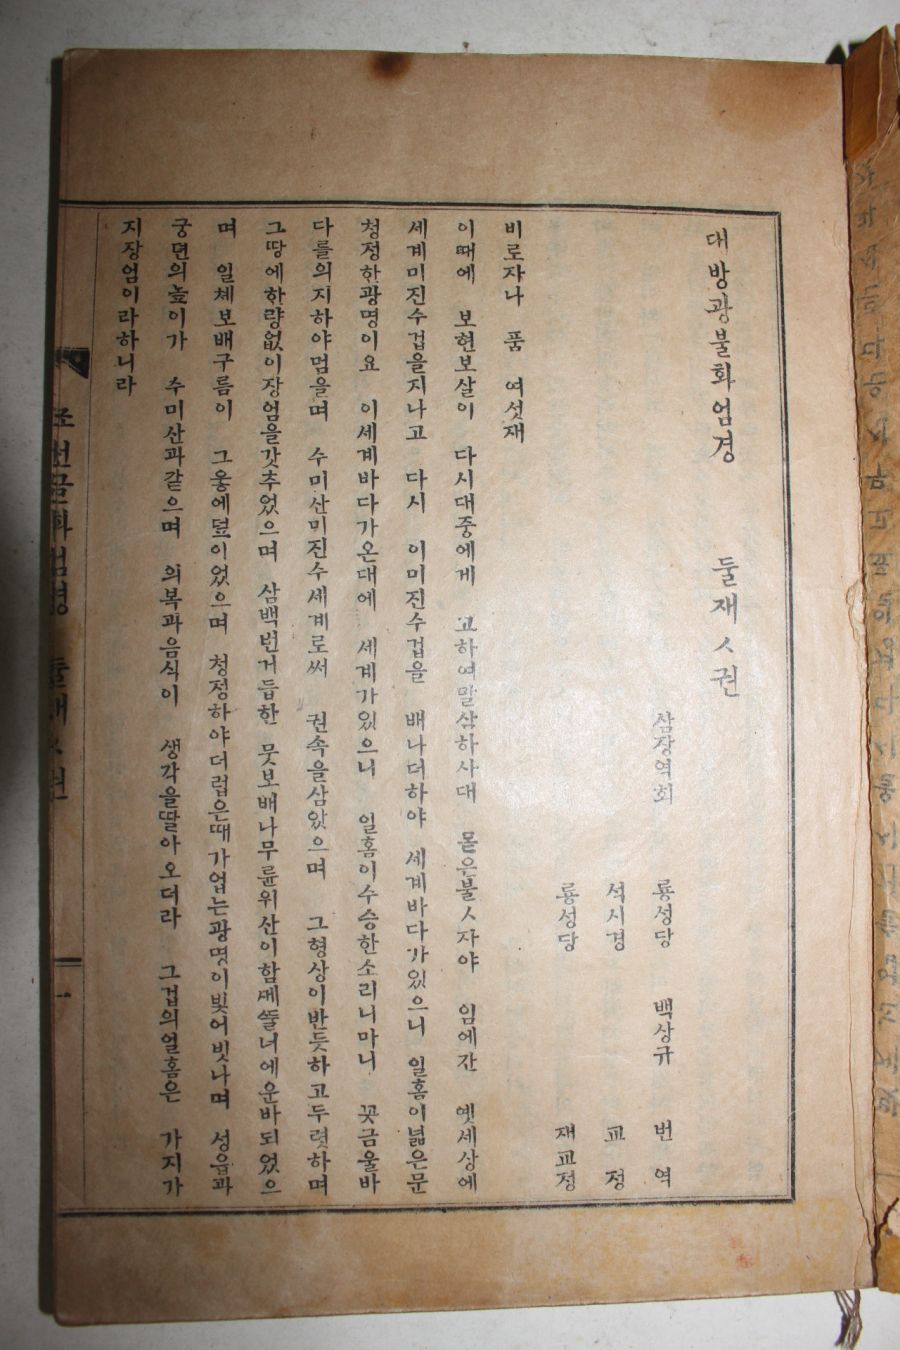 대방광불화엄경 둘재ㅅ권
삼장역회 룡성당 백상규 번역
석시경 교정
룡성당 재교정
비로자나 품 여섯재
이때에 보현보살이 다시대중에게 고하여말삼하사대 몯은불ㅅ자야 임에간 옛세상에
세계미진수겁을지나고 다시 이미진수겁을 배나더하야 세계바다가있으니 일홈이넓은문
청정한광명이요 이세계바다가온대에 세계가있으니 일홈이수승한소리니마니 꽃금울바
다를의지하야멈을며 수미산미진수세계로써 권속을삼았으며 그형상이반듯하고두렷하며
그땅에한량없이장엄을갓추었으며 삼백번거듭한 뭇보배나무륜위산이함께둘너에운바되었으
며 일체보배구름이 그웋에덮이었으며 청정하야더럽은때가업는광명이빛어빗나며 성읍과
궁뎐의높이가 수미산과같으며 의복과음식이 생각을딸아오더라 그겁의얼홈은 가지가
지장엄이라하니라
조선글화엄경 둘재ㅅ권 一